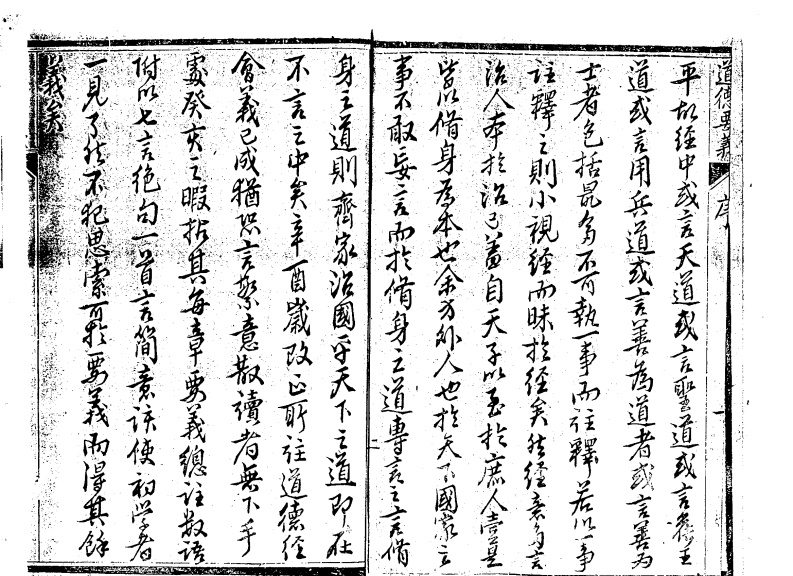 道德要義 序
平故經中或言天道或言聖道或言侯王
道或言用兵道或言善為道者或言善為
士者包括最多不可執一事而註釋若以一事
註釋之則小視經而昧於經矣然經意多言
治人本於治己蓋自天子以至於庶人壹是
皆以脩身為本也余方外人也於天下國家之
事不敢妄言而於脩身之道專言之言脩
身之道則齊家治國平天下之道即在
不言之中矣辛酉歲改正所註道德經
會義已成猶恐言繁意散讀者無下手
處癸亥之暇拈其每章要義總註數語
附以七言絕句一首言簡意該使初學者
一見了然不犯思索可於要義而得其餘
義矣